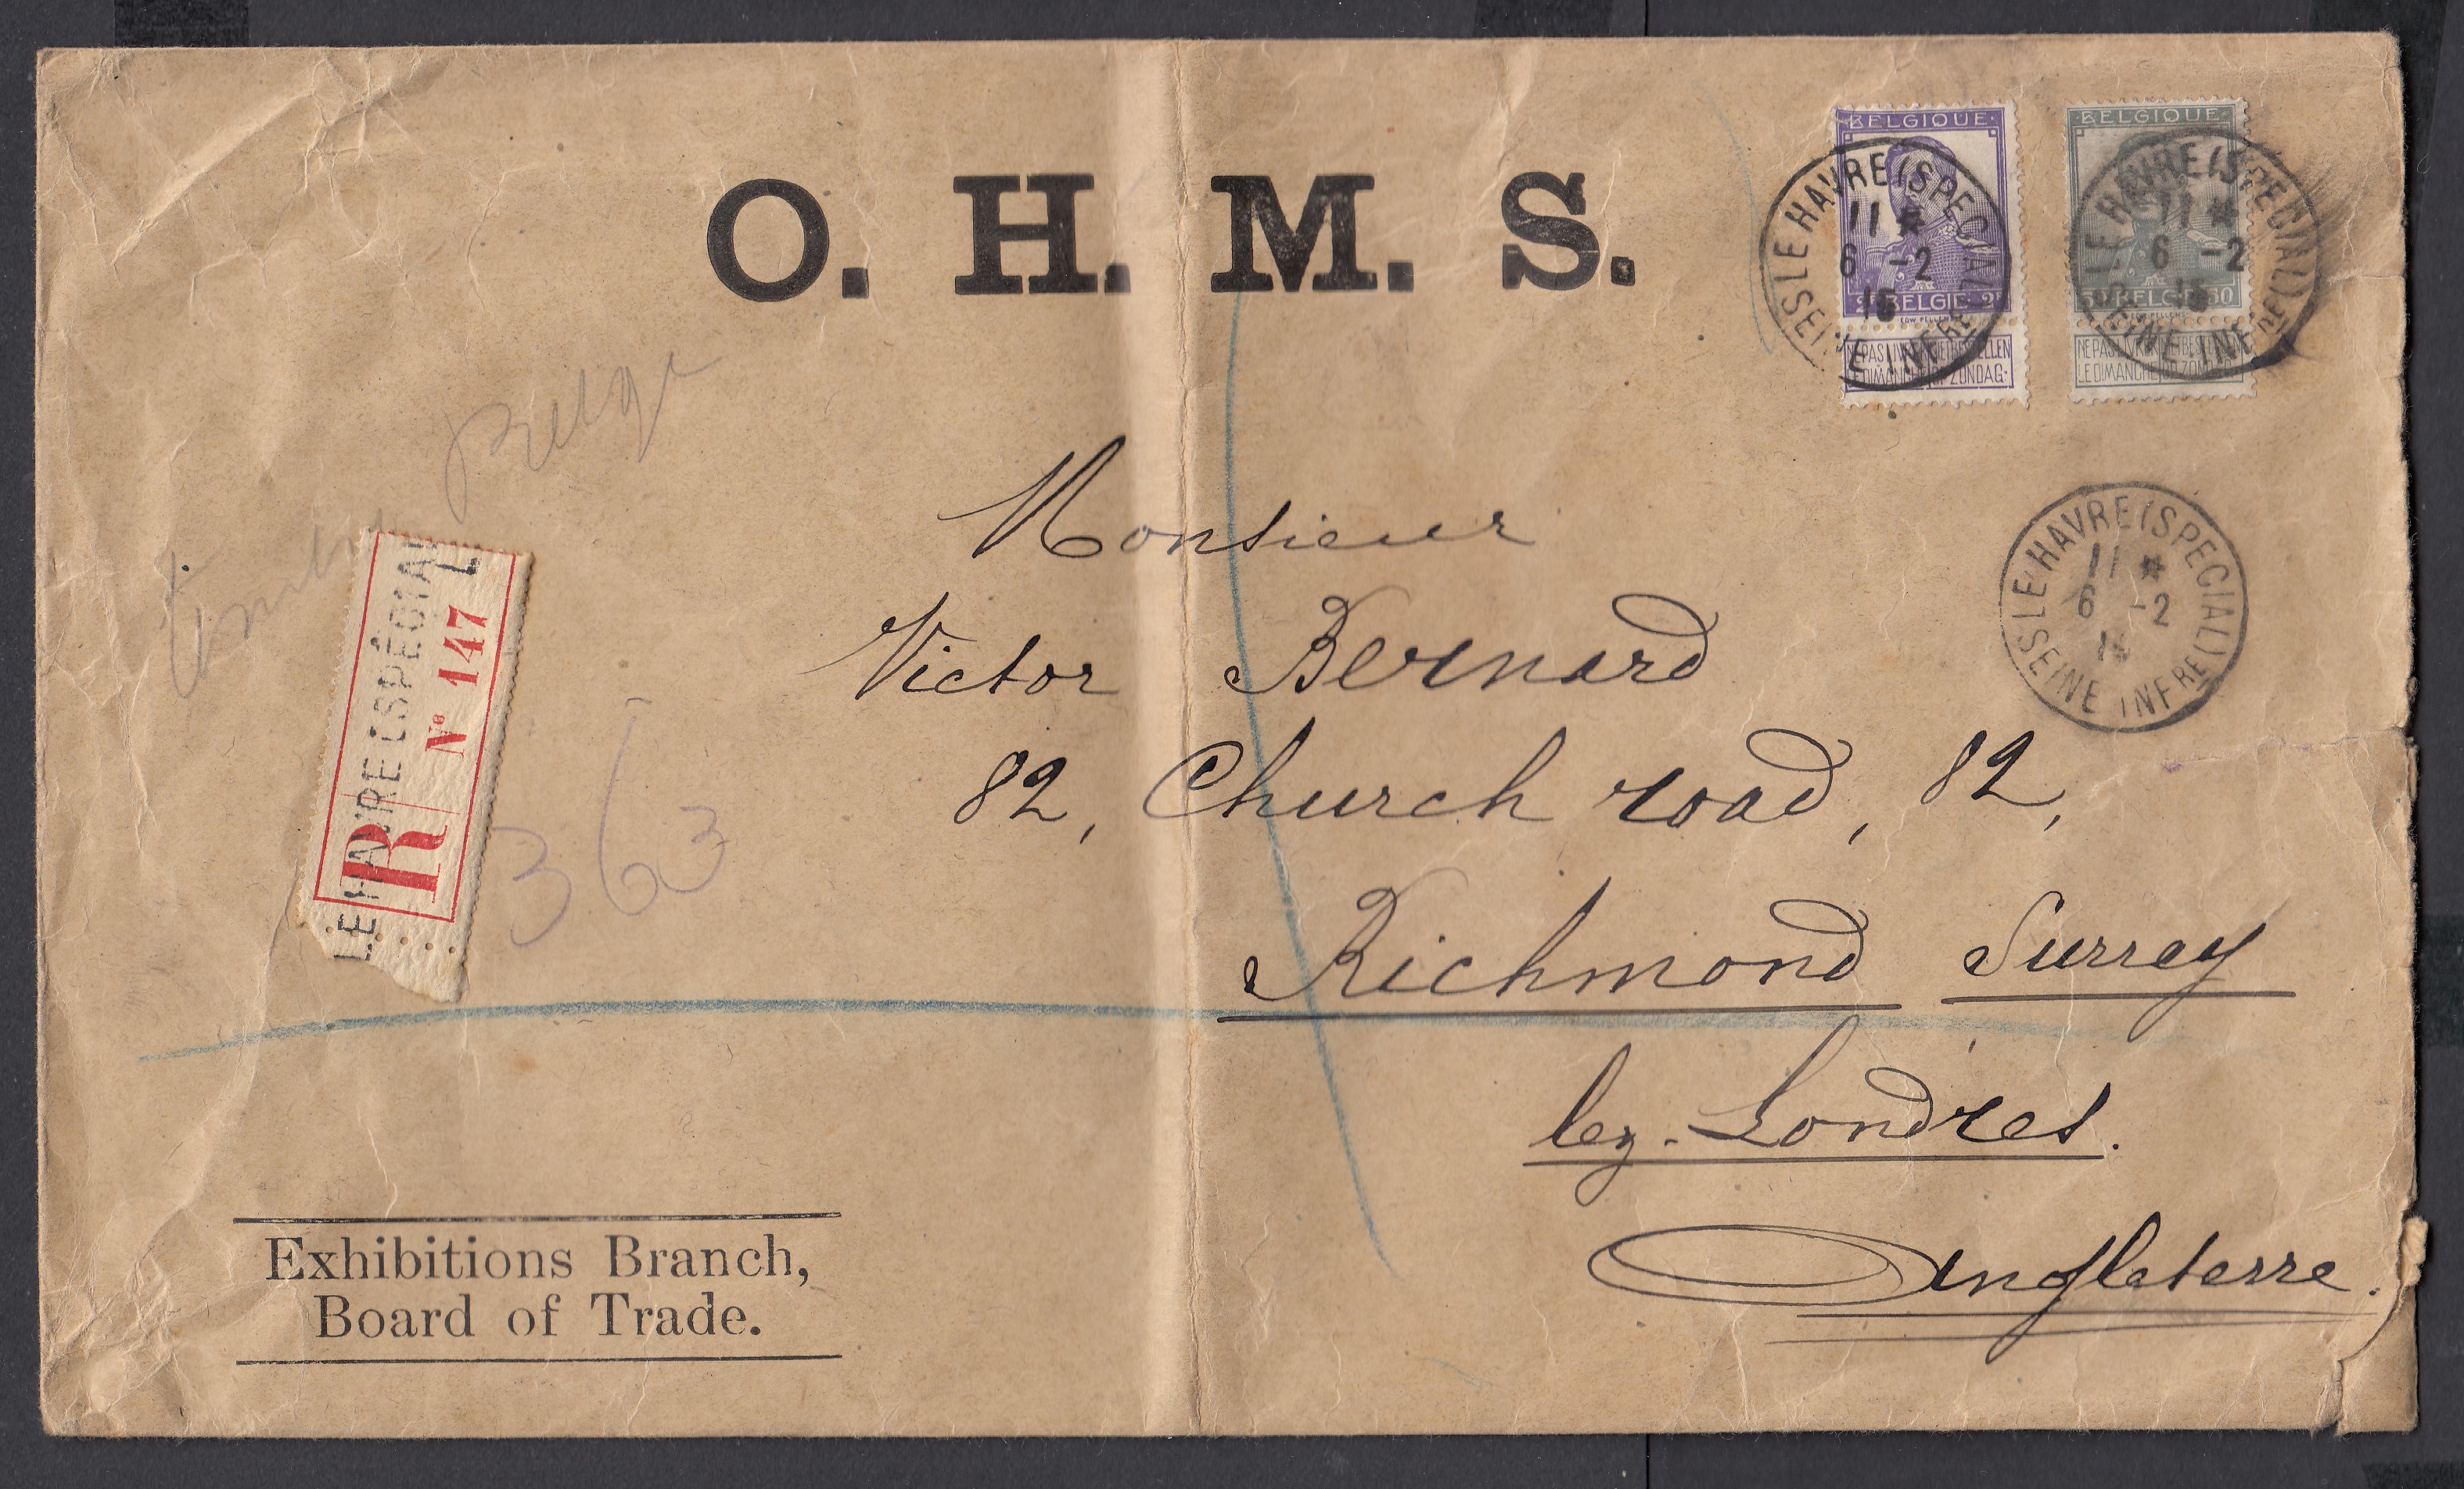 O. H. M. S.
BELGIQUE
BELGIE
NE PAS LIVRER NIET BESTELLEN
LE DIMANCHE OP ZONDAG
LE HAVRE (SPECIAL)
11 *
6 -2
15
SEINE INFRE
BELGIQUE
BELGIE 50
NE PAS LIVRER NIET BESTELLEN
LE DIMANCHE OP ZONDAG
LE HAVRE (SPECIAL)
11 *
6 -2
15
SEINE INFRE
Belge
LE HAVRE (SPÉCIAL
R Nº 147
363
LE HAVRE (SPECIAL)
11 *
6 -2
SEINE INFRE
Monsieur
Victor Bernard
82, Church road, 82,
Richmond Surrey
lez-Londres.
Angleterre.
Exhibitions Branch,
Board of Trade.